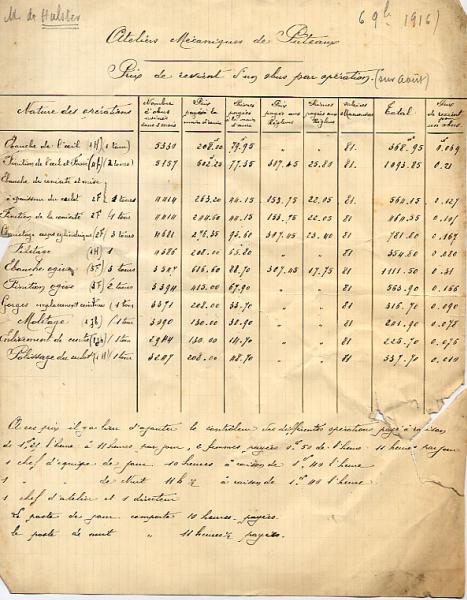 M. de Hulster 6 9bre 1916
Ateliers Mécaniques de Puteaux
Prix de revient d'un obus par opération. (sur Août)
Nature des opérations Nombre Prix Primes Prix Primes Total Prix de revient
Ebauche de l'œil (1H) 1 tour 5330 208.00 79.95 81. 368.95 0.069
Finition de l'œil et (4h) 2 tours 5157 602.20 77.35 307.45 25.80 81. 1093.85 0.21
Ebauche de ceinture et mise
à épaisseur du culot 2F 4 tours 4414 263.20 44.15 153.75 22.05 81 564.15 0.127
Finition de la ceinture 2F 4 tours 4414 204.60 44.15 153.75 22.05 81 464.35 0.107
cylindrique 2F 3 tours 4681 276.35 93.60 307.45 23.40 81 781.80 0.167
Filetage (1H) 1 4386 208.00 65.80 81 354.80 0.080
Ebauche ogive (5F) 3 tours 3547 616.60 88.70 307.45 17.75 81 1111.50 0.31
Finition ogive (3F) 2 tours 3394 415.00 67.90 81 563.90 0.166
Gorges emplacement ceinture 1 tour 3371 208.00 33.70 81 316.70 0.090
Moletage 1 tour 3090 130.00 30.90 81 201.90 0.078
Enlèvement de 1 tour 2944 130.00 14.70 81 225.70 0.076
Polissage du culot (1H) 1 tour 3207 208.00 48.70 81 337.70 0.010
A ces prix il y a lieu d'ajouter le contrôleur des différentes opérations payé à raison
de l'heure à 11 heures par jour, 2 femmes payées 0f50 de l'heure 11 heures par jour
1 chef d'équipe de jour 10 heures à raison de 1f40 l'heure
1 " " de Nuit 11 h ½ à raison de 1f40 l'heure
1 chef d'atelier et 1 directeur
Le poste de jour comporte 10 heures payées
Le poste de nuit " 11 heures ½ payées.